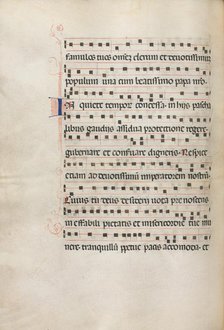 famulos tuos omem clerum et deuotissimū
populum una cum beatissimo papa nrō
quiete tempor concessa in hus pascha
libus gaudiis assidua protectione regere
gubernare et conseruare digneris Respice
etiam ad deuotissimū imperatorem nostrū
Cuius tu deus desiderii uota prenoscens
ineffabili pietatis et misericordie tue mu
nere tranquillū perpetue pacis accomoda et